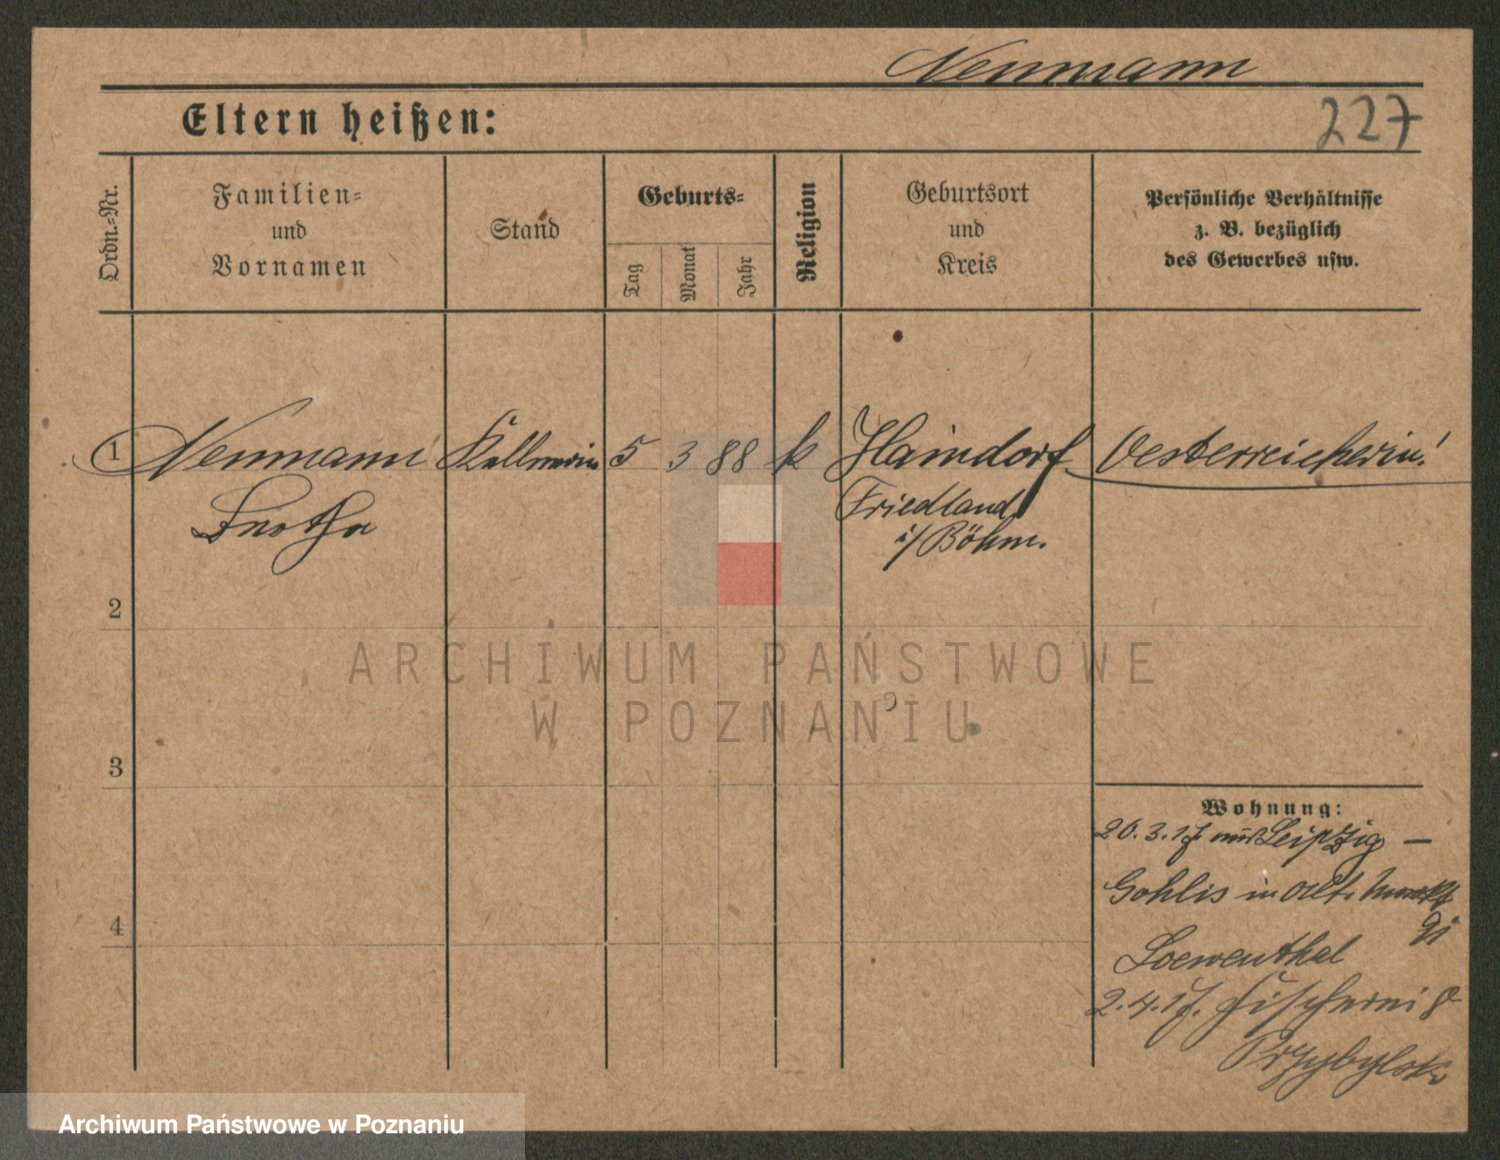 Neumann
227
Eltern heißen:
Ordn.-Nr.
Familien- und Vornamen
Stand
Geburts-
Tag
Monat
Jahr
Religion
Geburtsort und Kreis
Persönliche Verhältnisse z. B. bezüglich des Gewerbes usw.
1 Neumann Kellnerin 5 3 88 k Haindorf Oesterreicherin!
Friedland
i/Böhm.
2
ARCHIWUM PAŃSTWOWE
W POZNANIU
3
Wohnung:
20.3.17. aus Leipzig –
Gohlis in Alt. Markt
4
Loewenthal
2.4.17. Fischerei 8
Przybylski
Archiwum Państwowe w Poznaniu